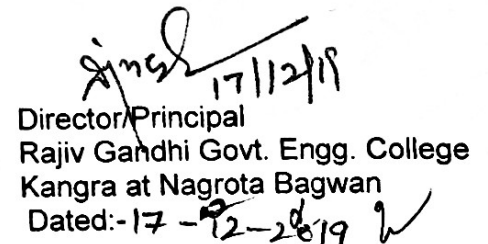 17/12/19
Director/Principal
Rajiv Gandhi Govt. Engg. College
Kangra at Nagrota Bagwan
Dated:-17-12-2019